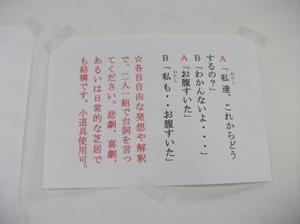 A「私達、これからどう
するの？」
B「わかんないよ・・・」
A「お腹すいた」
B「私も・・お腹すいた」
☆各自自由な発想や解釈
で、二人一組で台詞を言っ
てください。悲劇、喜劇、
あるいは日常的な芝居で
も結構です。小道具使用可。